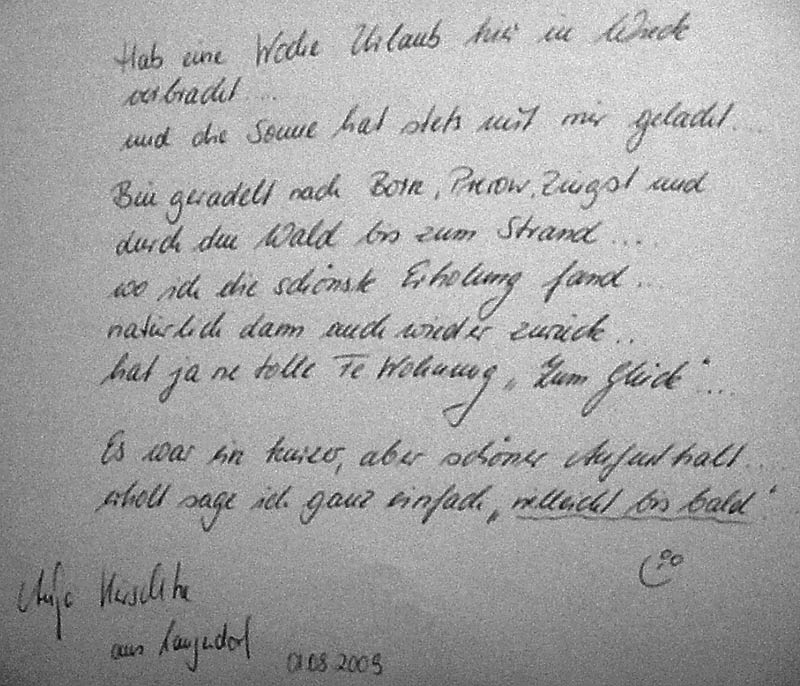 Hab eine Woche Urlaub hier in Wieck
verbracht....
und die Sonne hat stets mit mir gelacht....
Bin geradelt nach Born, Prerow, Zingst und
durch den Wald bis zum Strand....
wo ich die schönste Erholung fand...
natürlich dann auch wieder zurück..
hat ja ne tolle Fe Wohnung „Zum Glück"....
Es war ein kurzer, aber schöner Aufenthalt....
erholt sage ich ganz einfach „vielleicht bis bald"
Antje
aus Langendorf 01.08.2009